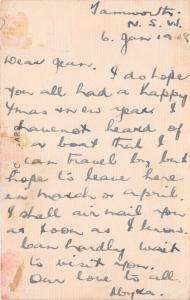 Tamworth.
N. S. W.
6. Jan 19
Dear Jean.
I do hope
you all had a happy
Xmas & new year. I
have not heard of
a boat that I
can travel by, but
hope to leave here
in march or april.
I shall air mail you
as soon as I know.
Can hardly wait
to visit you.
Our love to all